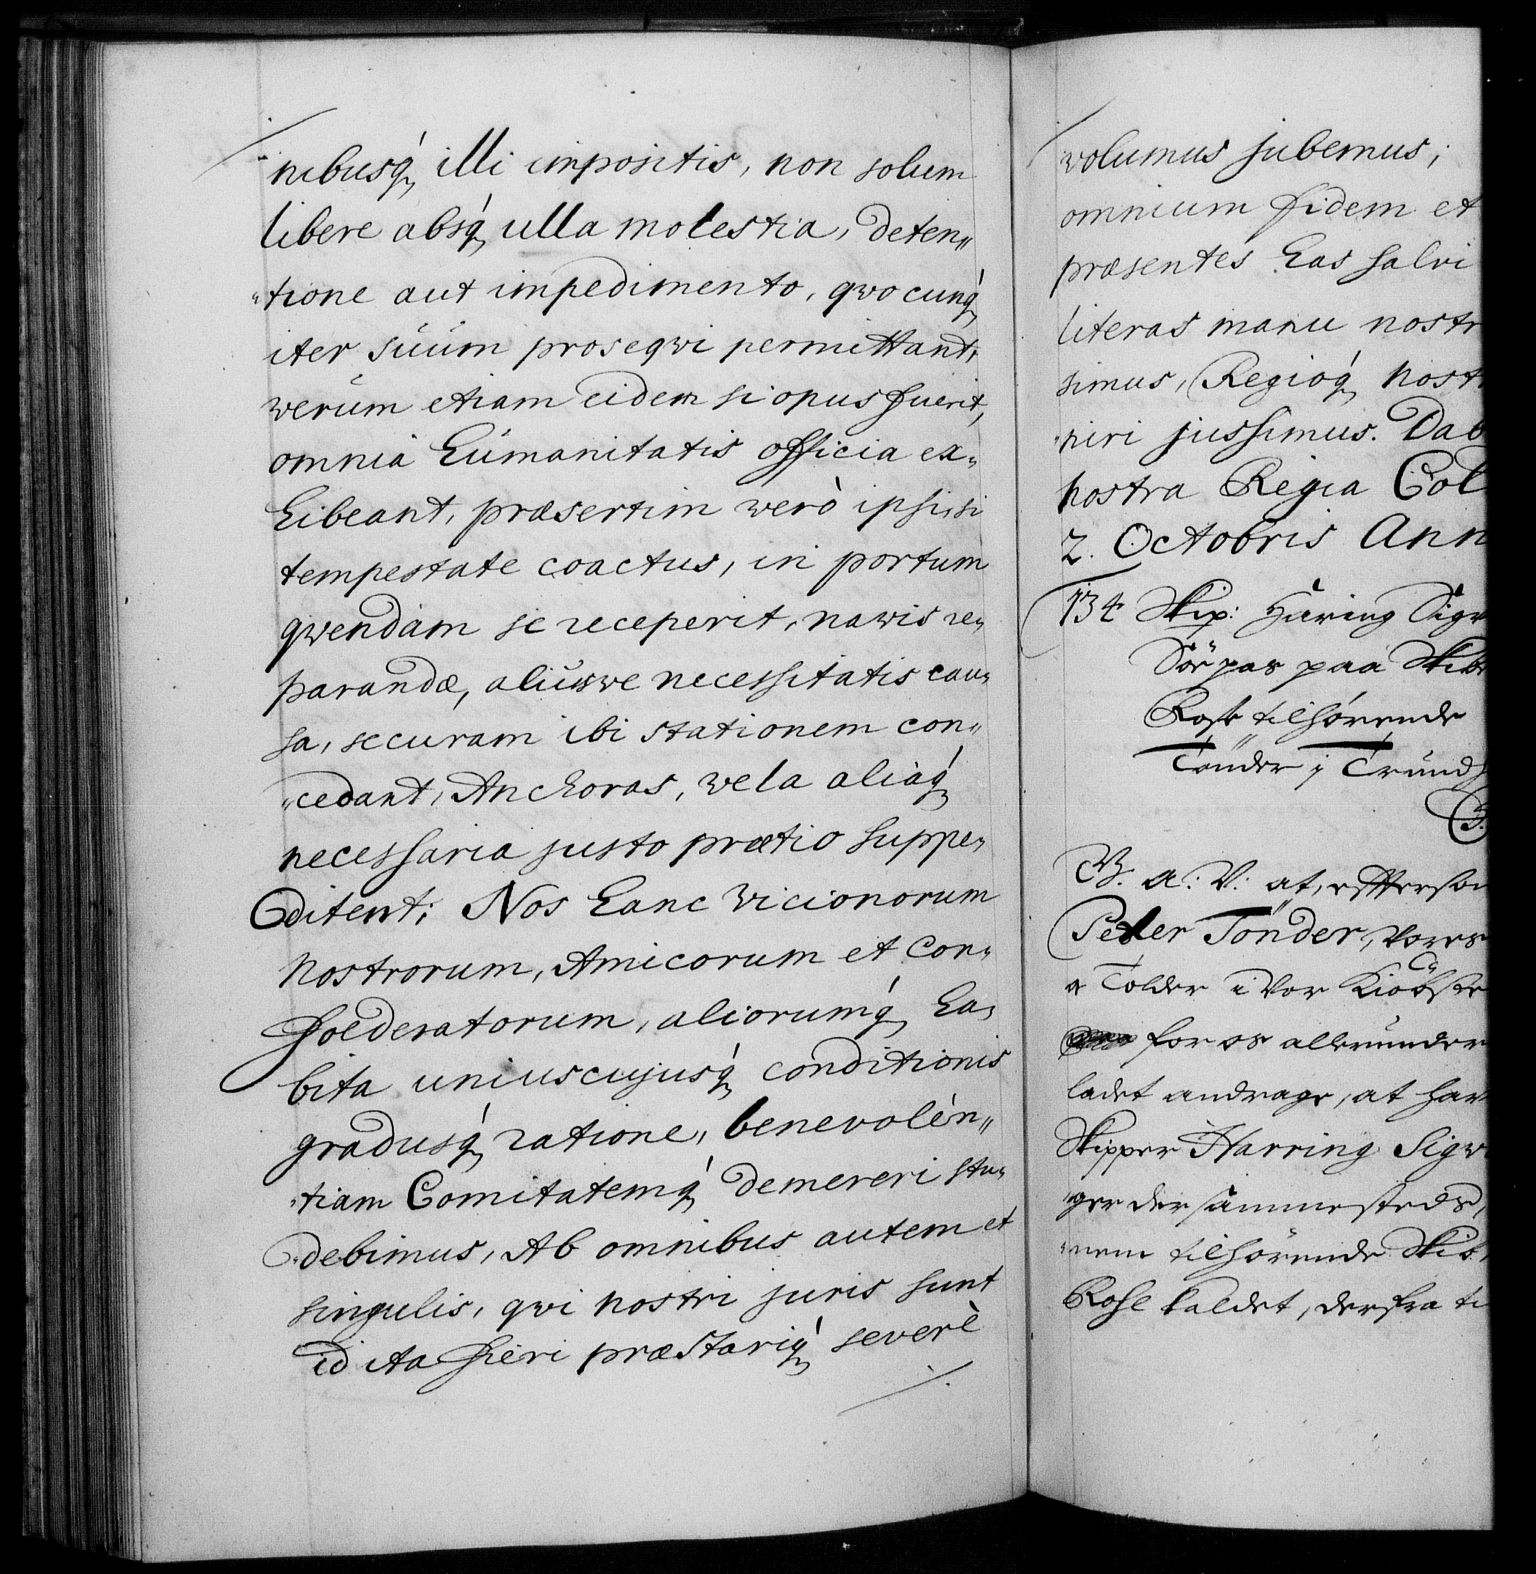 nibusq́ illi impositis, non solum
libere absq́ ulla molestia, deten„
„tione aut impedimento, qvocunq́
iter suům proseqvi permittant,
verům etiam eidem si opus fuerit,
omnia humanitatis officia ex„
hibeant, præsertim verò ipsi, si
tempestate coactus, in portum
qvendam se receperit, navis re„
parandæ, aliusve necessitatis cau„
sa, securam ibi stationem con„
„cedant, Anchoras, vela aliaq́
necessaria justo prætio suppe„
ditent; Nos hanc Vicinorum
Nostrorum, Amicorum et Con„
foederatorum, aliorumq́ ha„
bita uniuscujusq́ conditionis
gradusq́ ratione, benevolen„
„tiam Comitatemq́ demereri stu„
debimus, Ab omnibus autem et
singulis, qvi nostri juris sunt
id ita fieri præstariq́ severè
volumus jubemus;
omnium fidem et
præsentes has salvi
literas manu nostr
simus, Regioq́ nost
niri jussimus. Dab
nostra Regia Col
2. Octobris Ann
134 Skip: Haring Sigv
Søe pas paa Skibe
Rose tilhørende
Tønder i Trund
G. a: V: at, efftersom
Peter Tønder, vores
Tolder i vor Kiøbste
for os allerunder
ladet andrage, at han
Skipper Harring Sigv
ger dersammesteds,
nem tilhørende Skib,
Rose kaldet, derfra ti